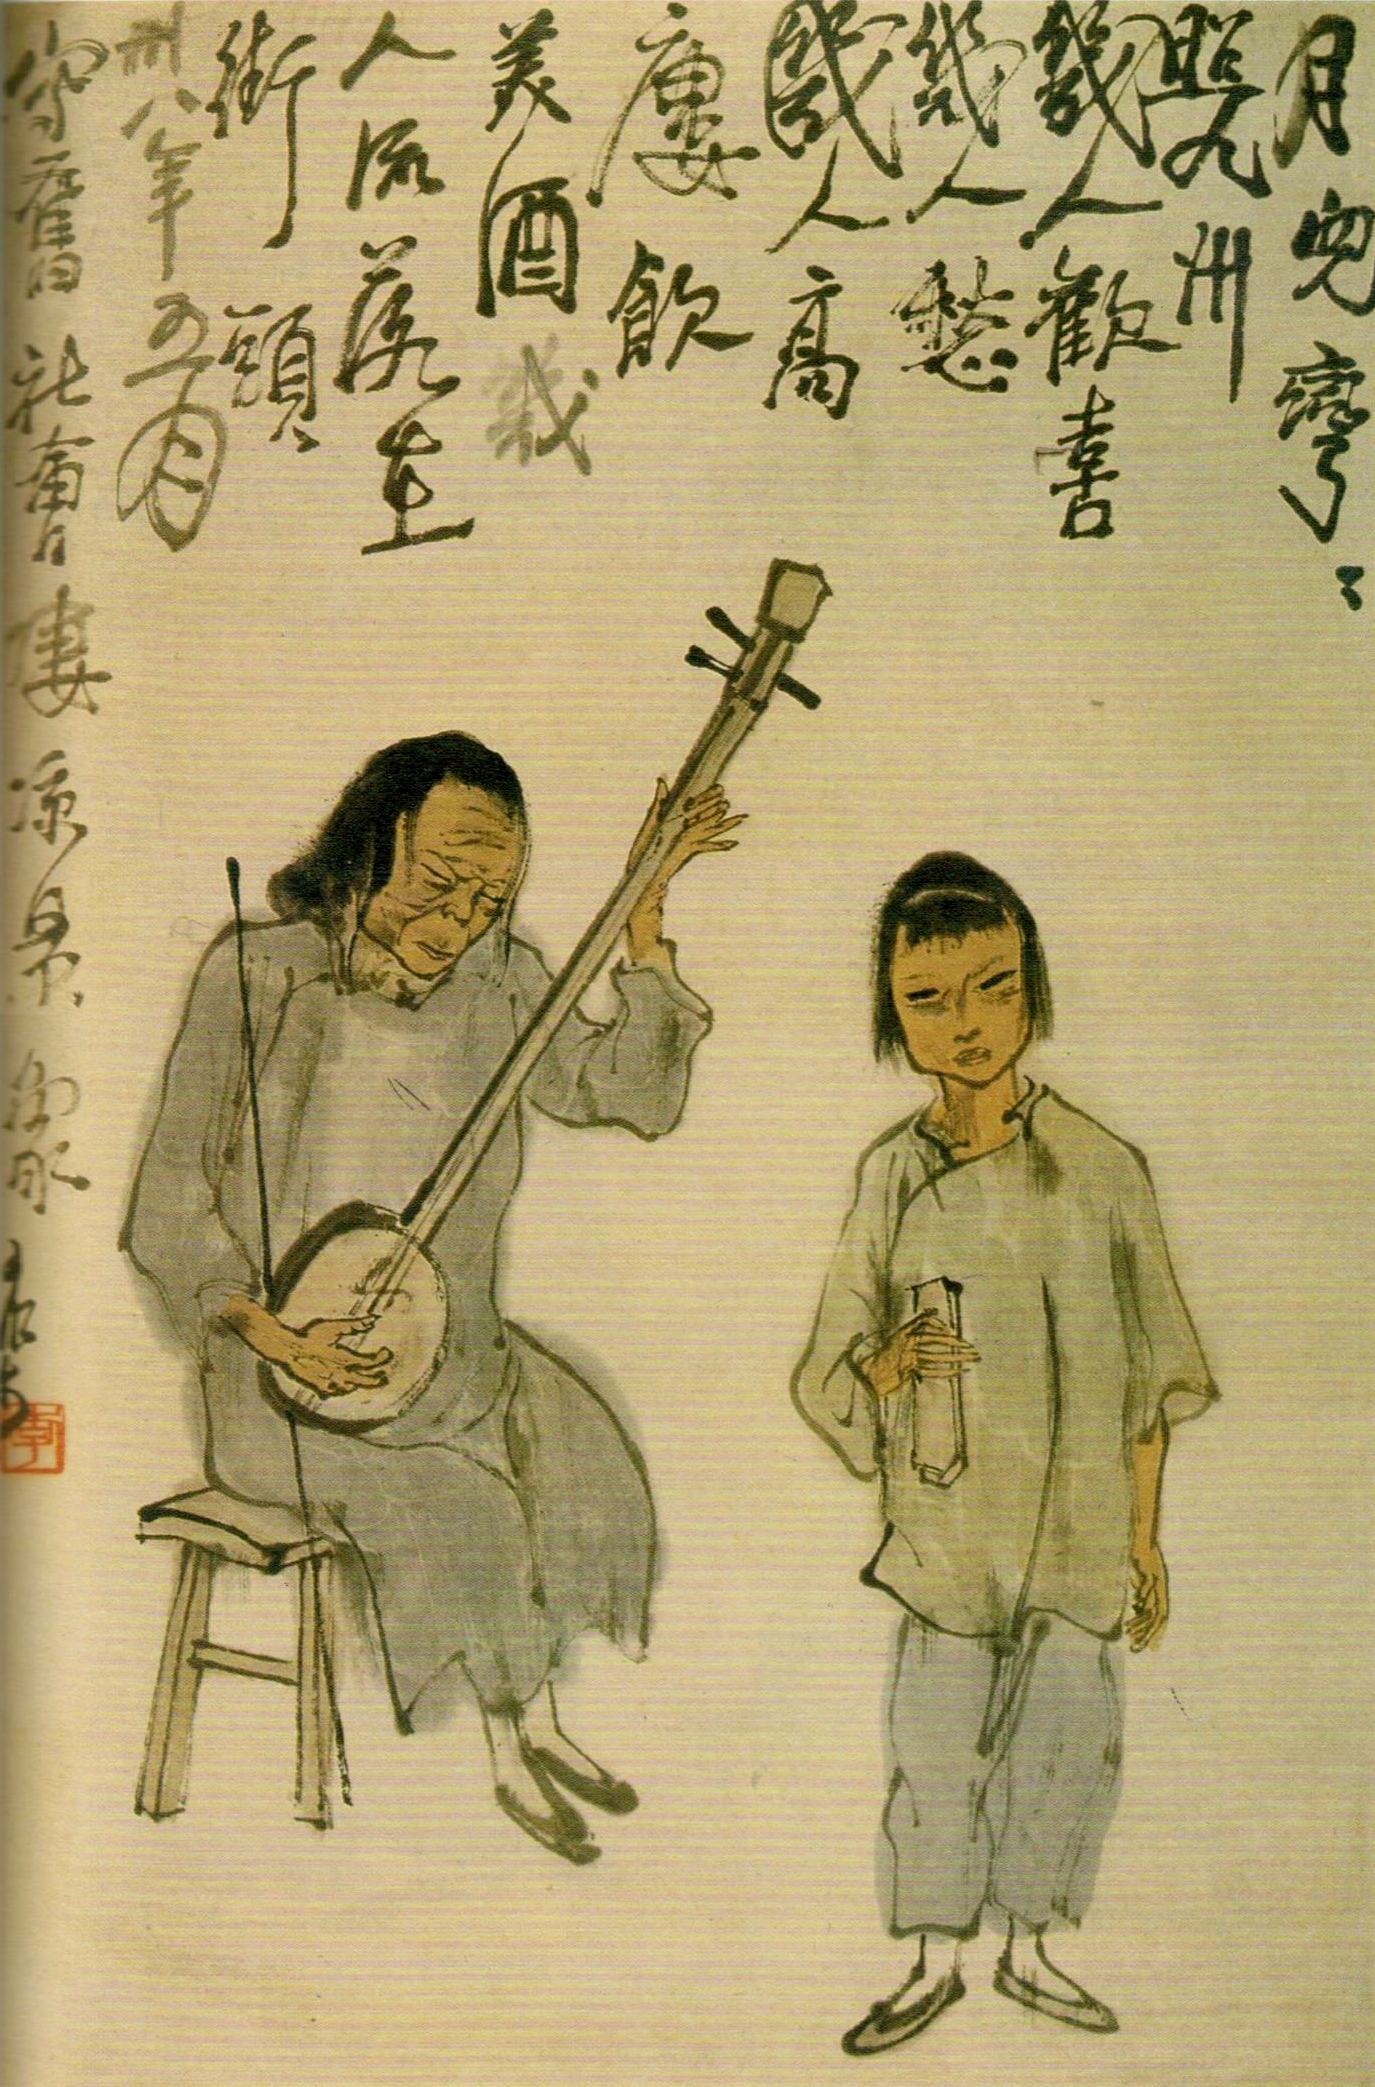 月兒彎〻
照九州
幾人歡喜
幾人愁
幾人高
廔飲
美酒幾
人流落在
街頭
卅八年五月
寫舊社會淒涼景